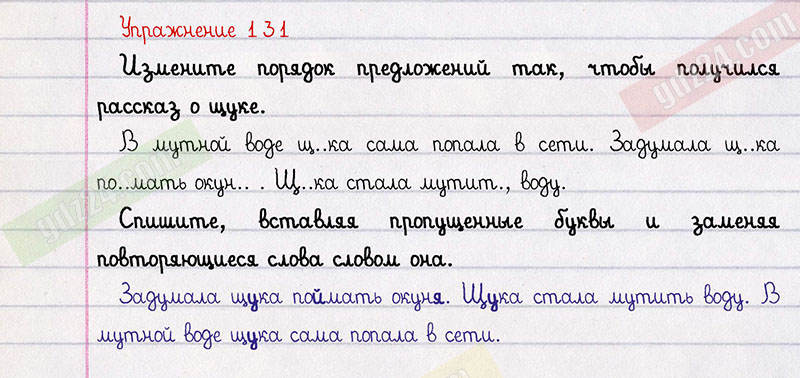 Упражнение 131
Измените порядок предложений так, чтобы получился
рассказ о щуке.
В мутной воде щ..ка сама попала в сети. Задумала щ..ка
по..мать окун.. . Щ..ка стала мутит., воду.
Спишите, вставляя пропущенные буквы и заменяя
повторяющиеся слова словом она.
Задумала щука поймать окуня. Щука стала мутить воду. В
мутной воде щука сама попала в сети.
gdz24.com
gdz24.com
gdz24.com